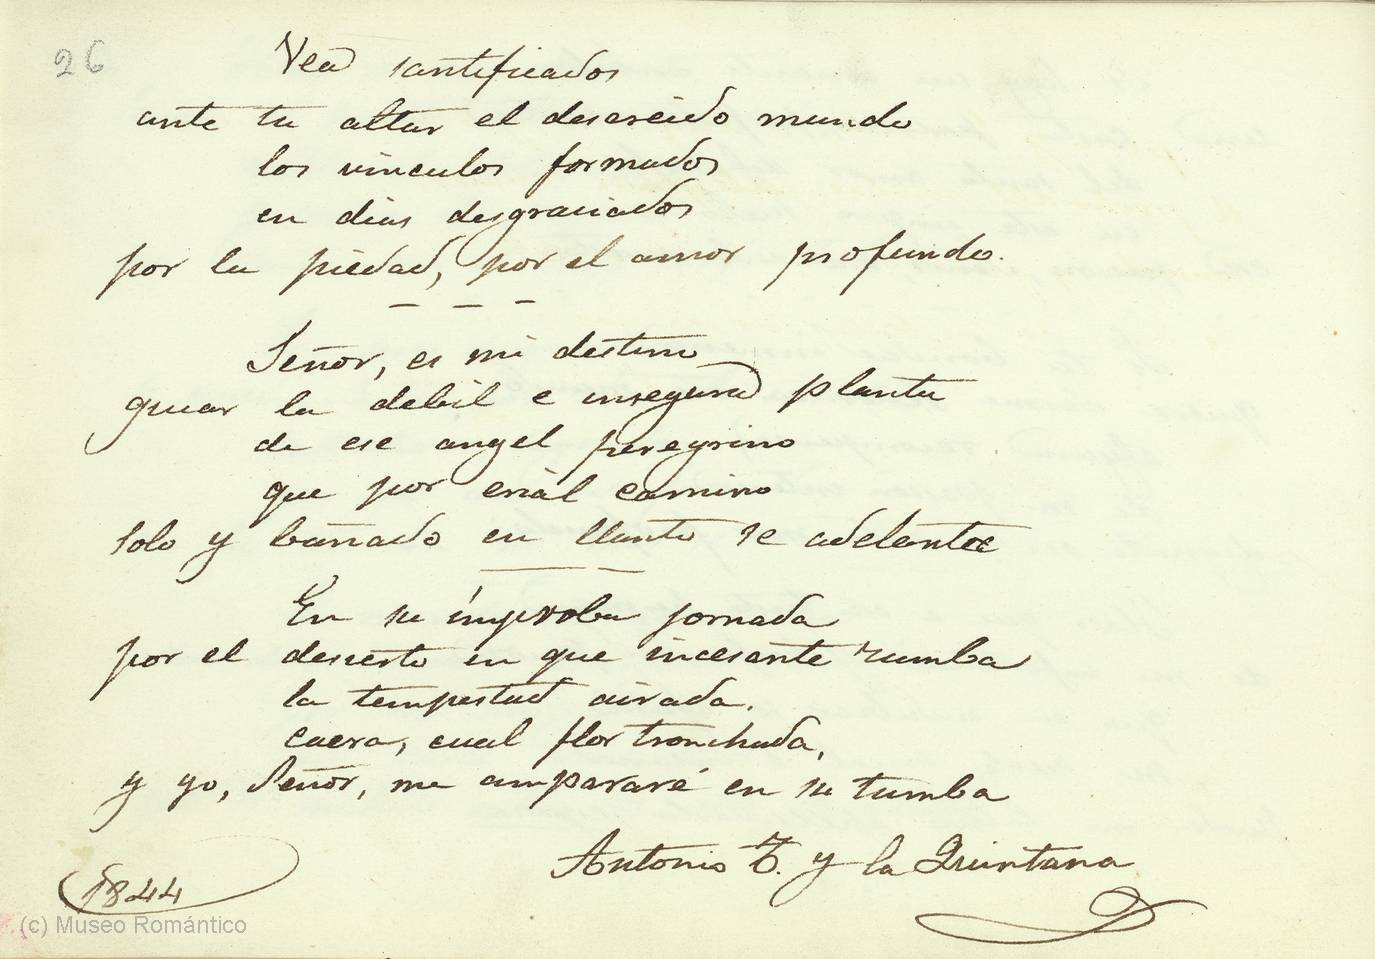 26
Vea santificados
ante tu altar el descreido mundo
los vinculos formados
en dias desgraciados
por la piedad, por el amor profundo.
Señor, es mi destino
guiar la debil e insegura planta
de ese angel peregrino
que por erial camino
solo y bañado en llanto se adelanta
En su ímproba jornada
por el desierto en que incesante zumba
la tempestad airada.
caera, cual flor tronchada,
y yo, Señor, me ampararé en su tumba
Antonio T. y la Quintana
1844
(c) Museo Romántico